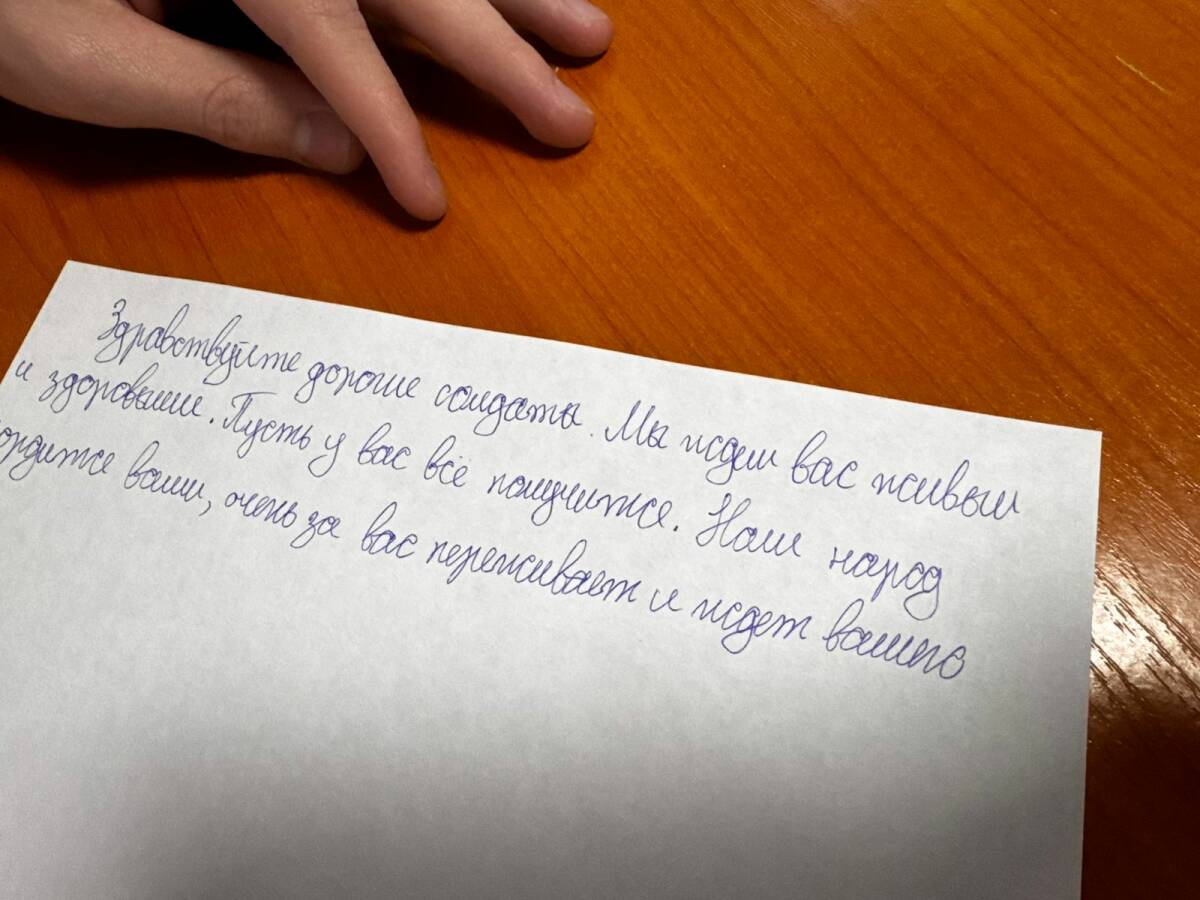 Здравствуйте дорогие солдаты. Мы ждем вас живыми
и здоровыми. Пусть у вас всё получится. Наш народ
гордится вами, очень за вас переживает и ждет вашего